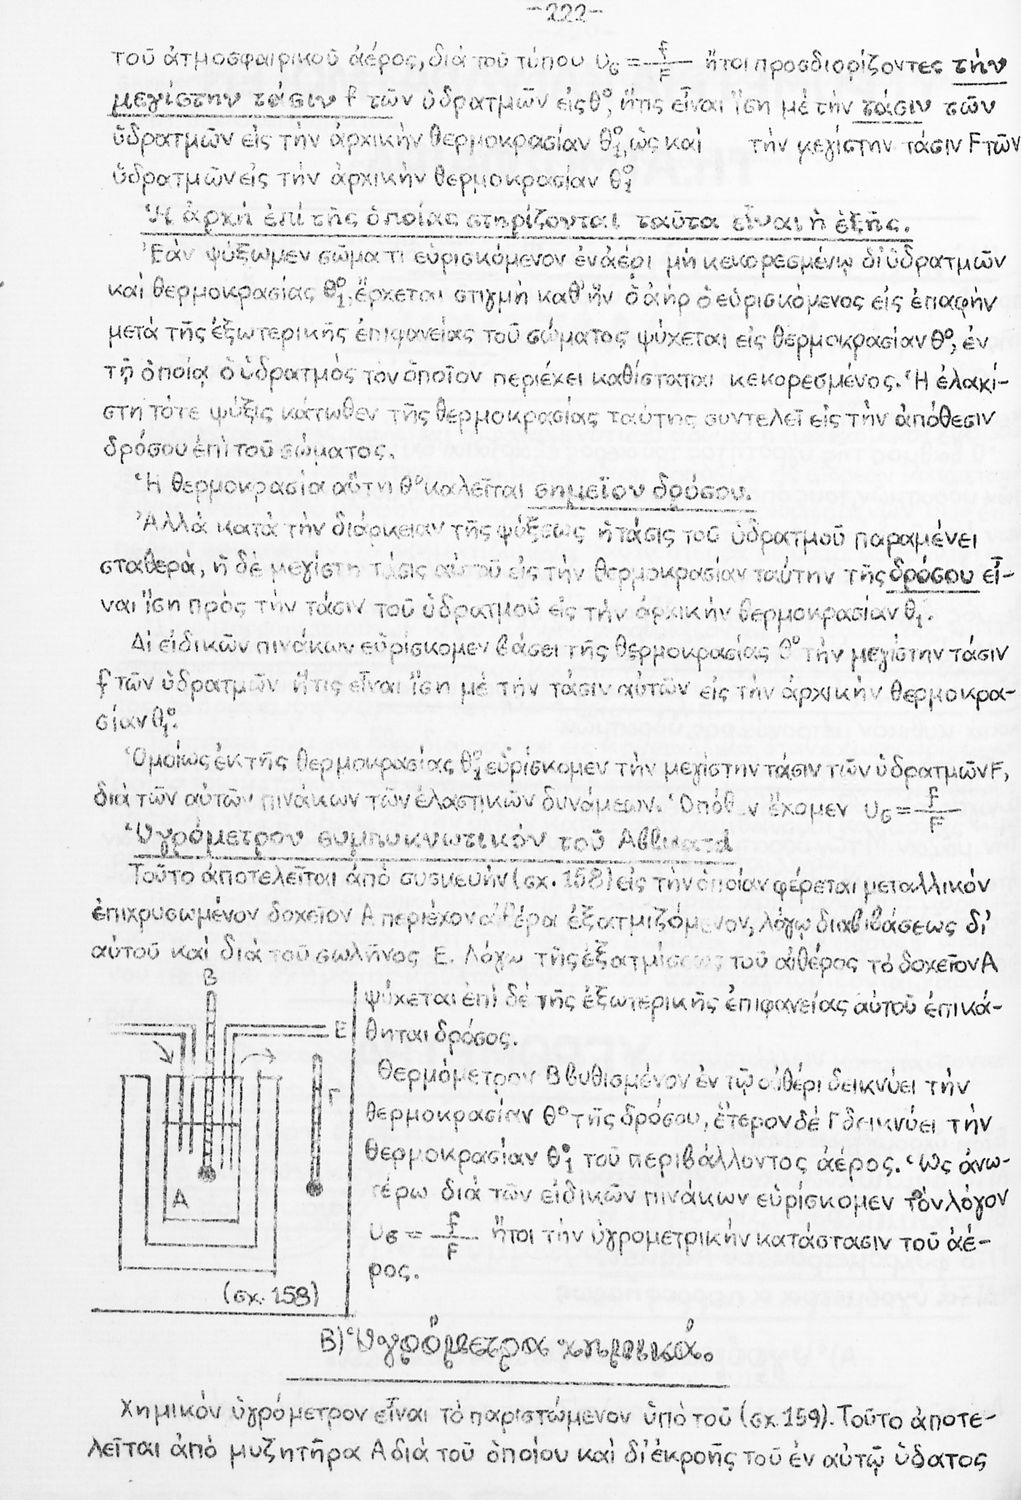 -222-
τοῦ ἀτμοσφαιρικοῦ ἀέρος, διά τοῦ τύπου υσ = f/F ἤτοι προσδιορίζοντες τὴν
μεγίστην τάσιν f τῶν ὑδρατμῶν εἰς θ°, ἥτις εἶναι ἴση μέ τὴν τάσιν τῶν
ὑδρατμῶν εἰς τὴν ἀρχικὴν θερμοκρασίαν θ°₁, ὡς καί τὴν μεγίστην τάσιν F τῶν
ὑδρατμῶν εἰς τὴν ἀρχικὴν θερμοκρασίαν θ°₁
Ἡ ἀρχή ἐπί τῆς ὁποίας στηρίζονται ταῦτα εἶναι ἡ ἑξῆς.
Ἐάν ψύξωμεν σῶμα τι εὑρισκόμενον ἐν ἀέρι μή κεκορεσμένῳ δι' ὑδρατμῶν
καί θερμοκρασίας θ°₁, ἔρχεται στιγμή καθ' ἥν ὁ ἀήρ ὁ εὑρισκόμενος εἰς ἐπαφήν
μετά τῆς ἐξωτερικῆς ἐπιφανείας τοῦ σώματος ψύχεται εἰς θερμοκρασίαν θ°, ἐν
τῇ ὁποίᾳ ὁ ὑδρατμός τόν ὁποῖον περιέχει καθίσταται κεκορεσμένος. Ἡ ἐλαχί-
στη τότε ψῦξις κάτωθεν τῆς θερμοκρασίας ταύτης συντελεῖ εἰς τὴν ἀπόθεσιν
δρόσου ἐπί τοῦ σώματος.
Ἡ θερμοκρασία αὕτη θ° καλεῖται σημεῖον δρόσου.
Ἀλλά κατά τὴν διάρκειαν τῆς ψύξεως ἡ τάσις τοῦ ὑδρατμοῦ παραμένει
σταθερά, ἡ δέ μεγίστη τάσις αὐτοῦ εἰς τὴν θερμοκρασίαν ταύτην τῆς δρόσου εἶ-
ναι ἴση πρός τὴν τάσιν τοῦ ὑδρατμοῦ εἰς τὴν ἀρχικὴν θερμοκρασίαν θ₁°.
Δι' εἰδικῶν πινάκων εὑρίσκομεν βάσει τῆς θερμοκρασίας θ° τὴν μεγίστην τάσιν
f τῶν ὑδρατμῶν ἥτις εἶναι ἴση μέ τὴν τάσιν αὐτῶν εἰς τὴν ἀρχικὴν θερμοκρα-
σίαν θ₁°.
Ὁμοίως ἐκ τῆς θερμοκρασίας θ°₁ εὑρίσκομεν τὴν μεγίστην τάσιν τῶν ὑδρατμῶν F,
διά τῶν αὐτῶν πινάκων τῶν ἐλαστικῶν δυνάμεων. Ὁπόθεν ἔχομεν υσ = f/F
Ὑγρόμετρον συμπυκνωτικόν τοῦ
Τοῦτο ἀποτελεῖται ἀπό συσκευήν (σχ. 158) εἰς τὴν ὁποίαν φέρεται μεταλλικόν
ἐπιχρυσωμένον δοχεῖον Α περιέχον αἰθέρα ἐξατμιζόμενον, λόγῳ διαβιβάσεως δι'
αὐτοῦ καί διά τοῦ σωλῆνος Ε. Λόγῳ τῆς ἐξατμίσεως τοῦ αἰθέρος τό δοχεῖον Α
ψύχεται ἐπί δέ τῆς ἐξωτερικῆς ἐπιφανείας αὐτοῦ ἐπικά-
θηται δρόσος.
Θερμόμετρον Β βυθισμένον ἐν τῷ αἰθέρι δεικνύει τὴν
θερμοκρασίαν θ° τῆς δρόσου, ἕτερον δέ Γ δεικνύει τὴν
θερμοκρασίαν θ°₁ τοῦ περιβάλλοντος ἀέρος. Ὡς ἀνω-
τέρω διά τῶν εἰδικῶν πινάκων εὑρίσκομεν τόν λόγον
υσ = f/F ἤτοι τὴν ὑγρομετρικήν κατάστασιν τοῦ ἀέ-
ρος.
Β
Ε
Γ
Α
(σχ. 158)
Β) Ὑγρόμετρα χημικά.
Χημικόν ὑγρόμετρον εἶναι τό παριστώμενον ὑπό τοῦ (σχ. 159). Τοῦτο ἀποτε-
λεῖται ἀπό μυζητῆρα Α διά τοῦ ὁποίου καί δι' ἐκροῆς τοῦ ἐν αὐτῷ ὕδατος